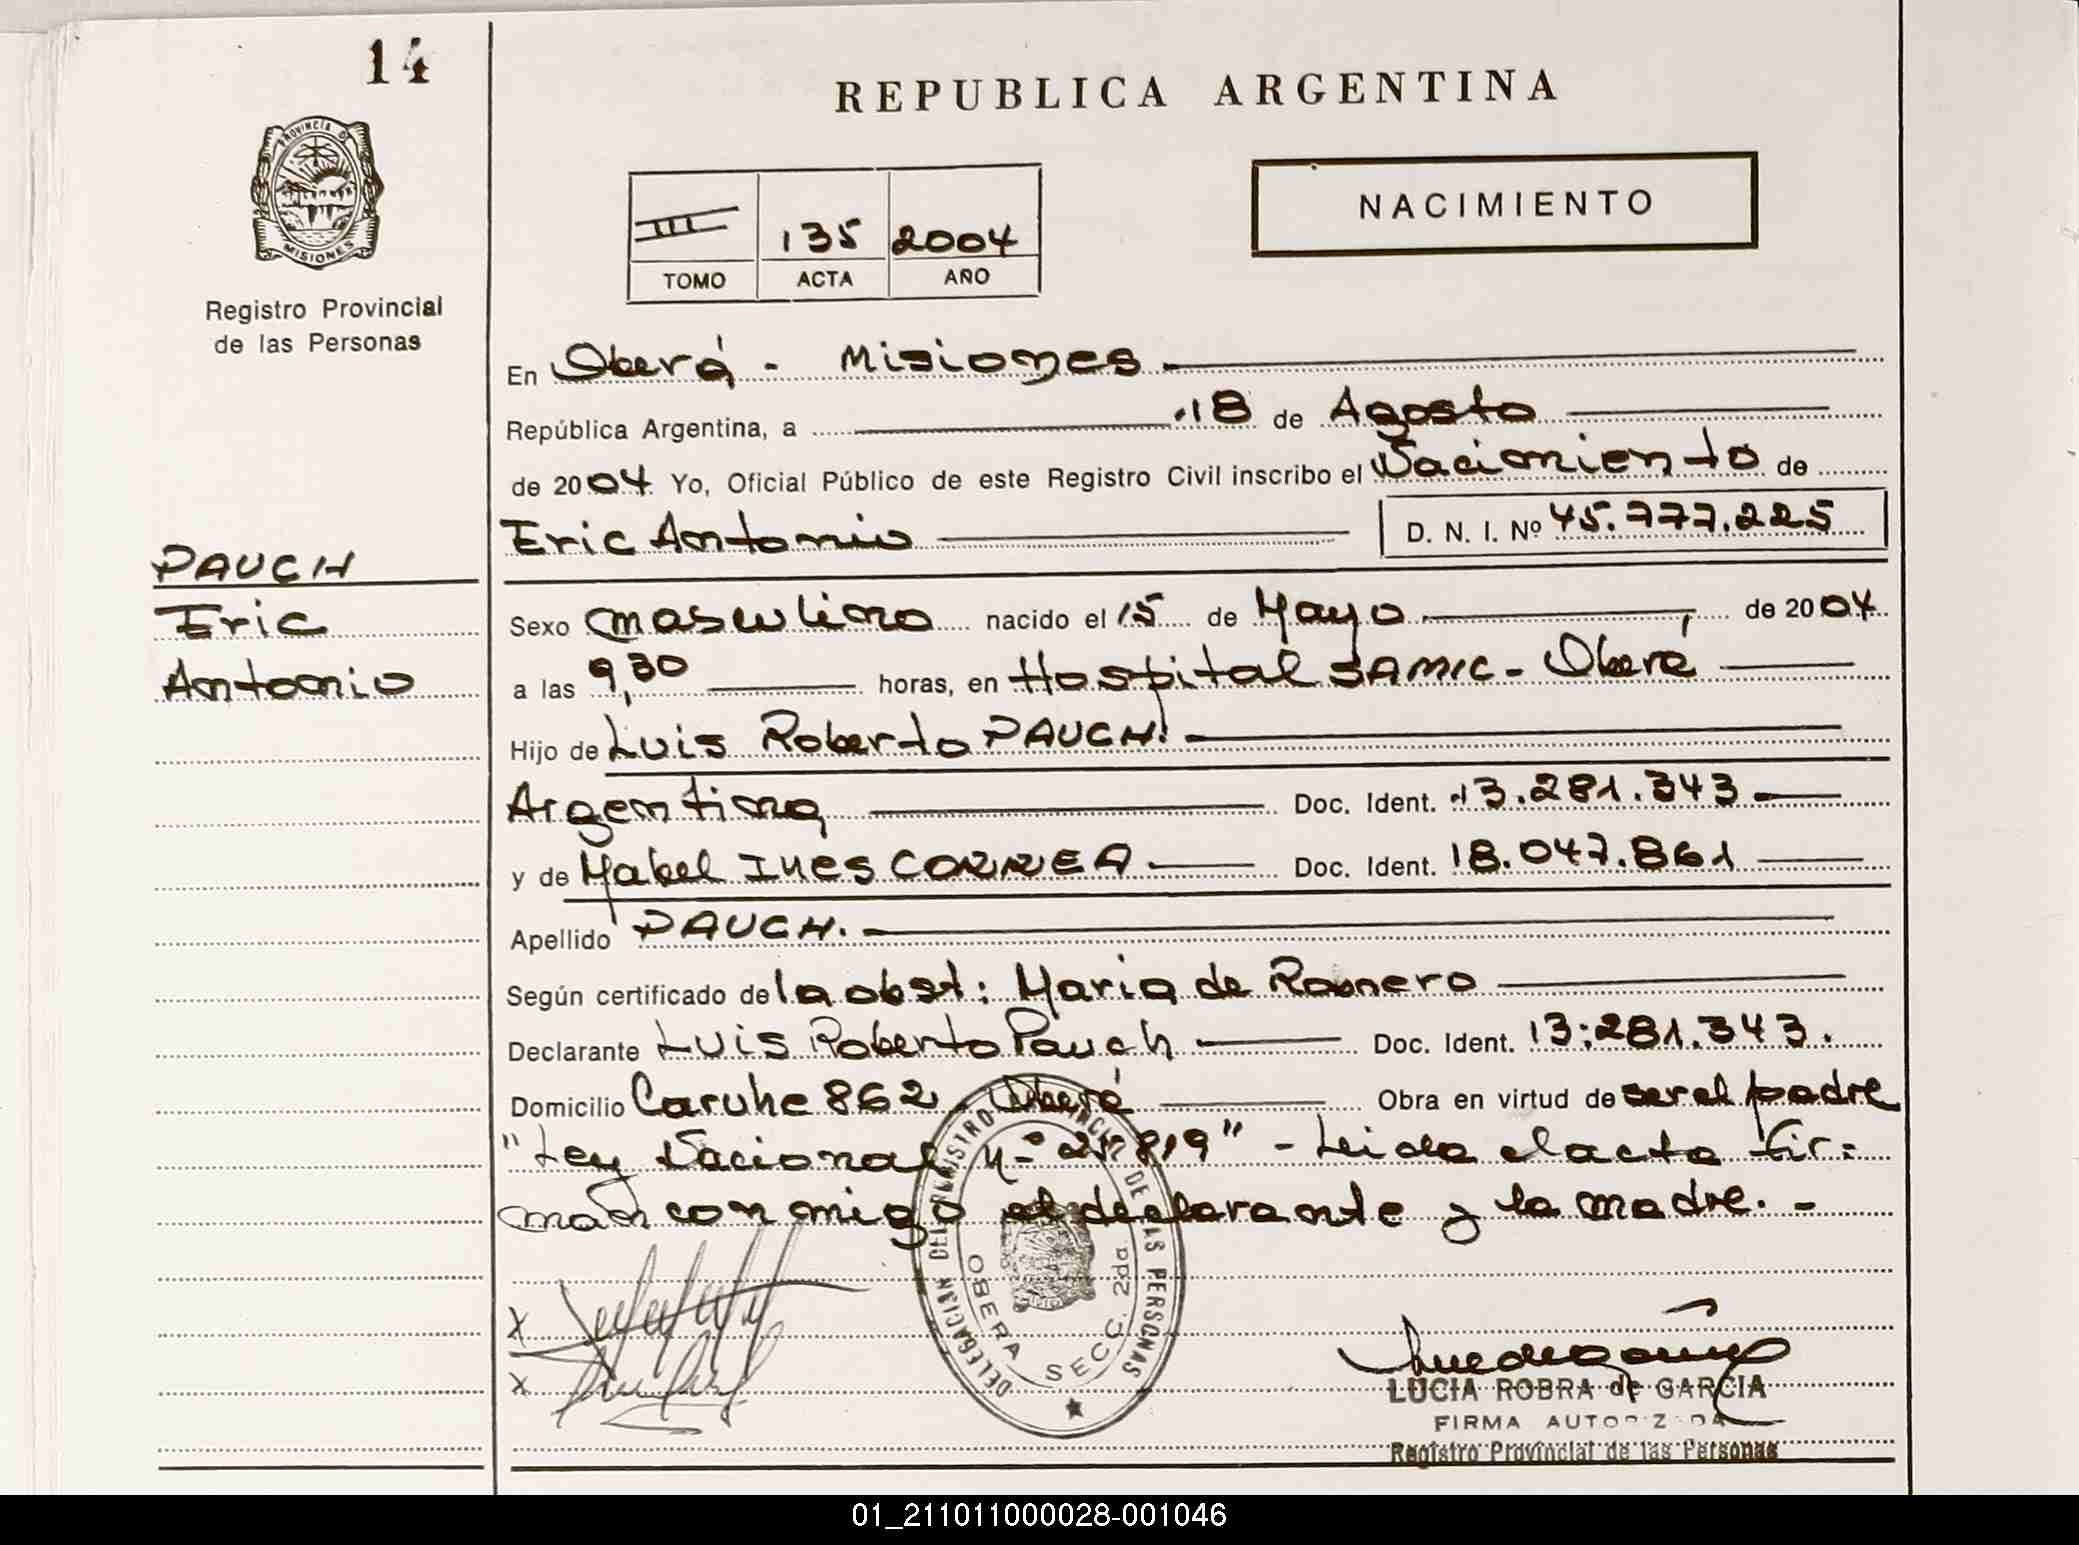 14
REPUBLICA ARGENTINA
PROVINCIA DE MISIONES
Registro Provincial
de las Personas
III 135 2004
TOMO ACTA AÑO
NACIMIENTO
En Oberá - Misiones
República Argentina, a 18 de Agosto
de 2004 Yo, Oficial Público de este Registro Civil inscribo el Nacimiento de
Eric Antonio D. N. I. Nº 45.777.225
PAUCH
Eric
Antonio
Sexo masculino nacido el 15 de Mayo de 2004
a las 9,30 horas, en Hospital SAMIC - Oberá
Hijo de Luis Roberto PAUCH.
Argentina Doc. Ident. 13.281.343
y de Mabel Ines CORREA Doc. Ident. 18.047.861
Apellido PAUCH.
Según certificado de la obst: Maria de
Declarante Luis Roberto Pauch Doc. Ident. 13.281.343.
Domicilio Caruhe 862 - Oberá Obra en virtud de ser el padre
"Ley Nacional Nº 25.819" - Leida el acta fir=
man con migo el declarante y la madre. -
DELEGACION DEL REGISTRO PROVINCIAL DE LAS PERSONAS
OBERA SECC. 2da
X
X
LUCIA ROBRA de GARCIA
FIRMA AUTORIZADA
Registro Provincial de las Personas
01_211011000028-001046